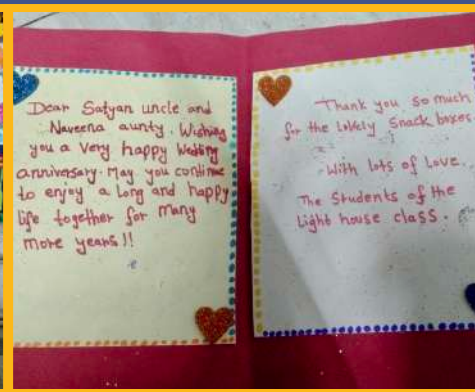 Dear Satyan uncle and
Naveena aunty. Wishing
you a very happy Wedding
anniversary. May you continue
to enjoy a long and happy
life together for many
more years!!
Thank you so much
for the lovely snack boxes.
With lots of Love.
The Students of the
Light house class.